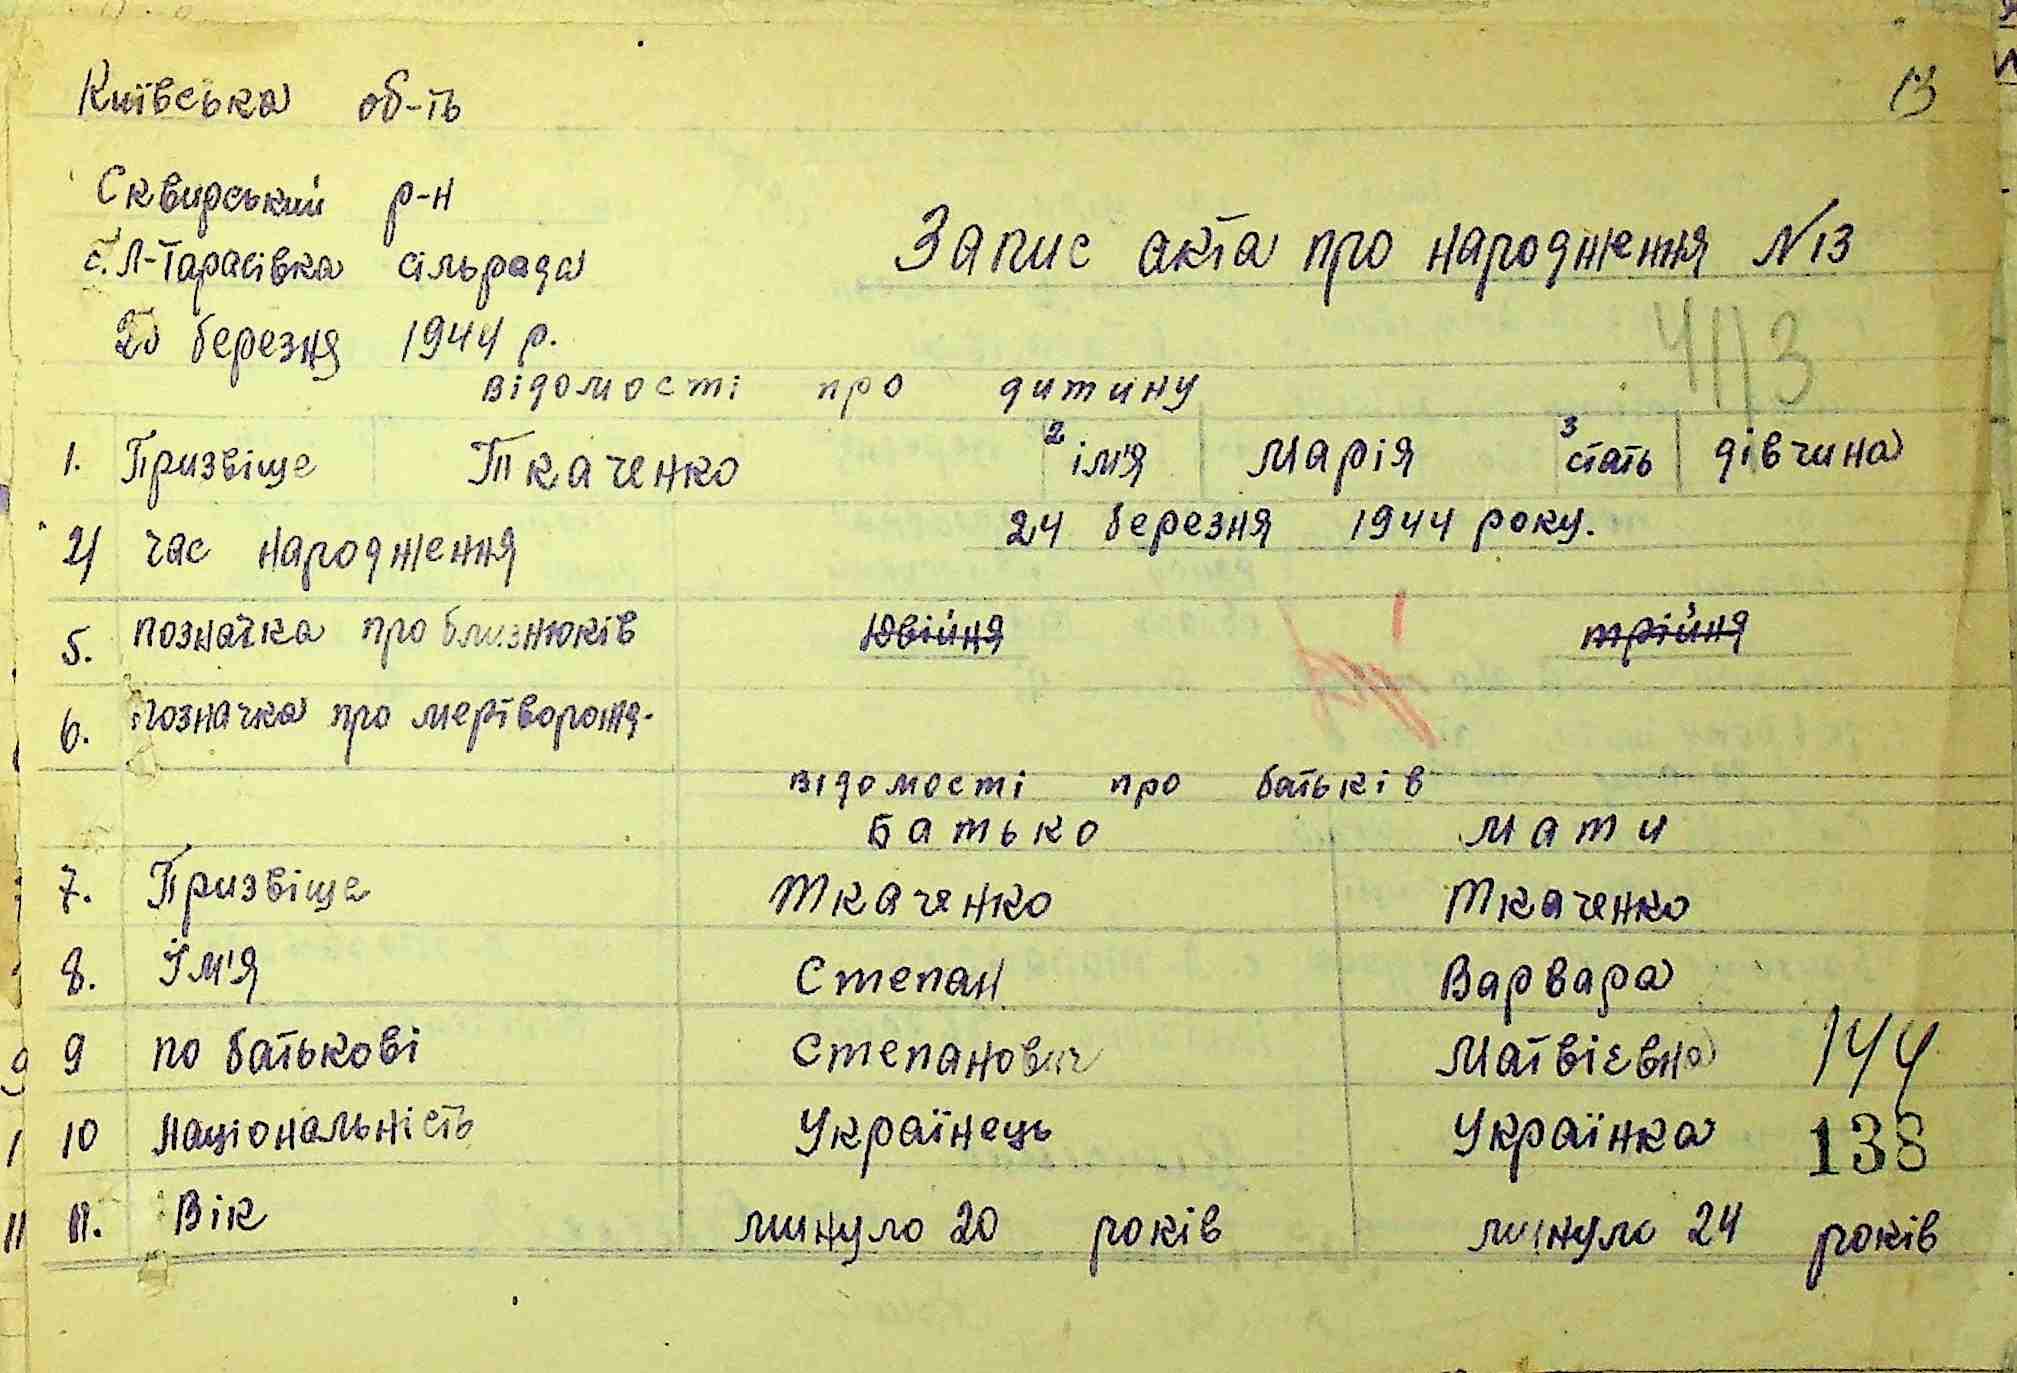 Київська об-ть
13
Сквирський р-н
с. Л-Тарасівка сільрада
Запис акта про народження №13
березня 1944 р.
відомості про дитину
1. Призвіще Ткаченко 2 ім'я Марія 3 стать дівчина
4 час народження 24 березня 1944 року.
5. позначка про близнюків двійня трійня
6. позначка про мертворожд-
відомості про батьків
Батько Мати
7. Призвіще Ткаченко Ткаченко
8. Їм'я Степан Варвара
9 по батькові Степанович Матвієвна
144
10 національність Українець Українка
138
11. Вік минуло 20 років минуло 24 років